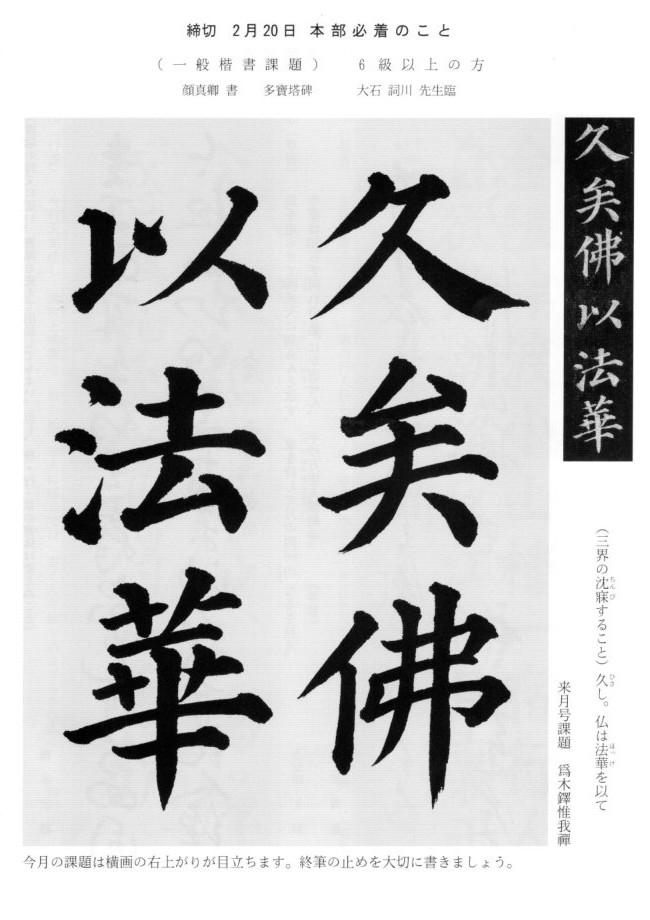 締切 2月20日 本部必着のこと
(一般楷書課題) 6級以上の方
顔真卿 書 多寶塔碑 大石 詞川 先生臨
久矣佛以法華
久矣佛
以法華
(三界の沈寐すること)久し。仏は法華を以て
ちんび
ひさ
ほっけ
来月号課題 爲木鐸惟我禪
今月の課題は横画の右上がりが目立ちます。終筆の止めを大切に書きましょう。